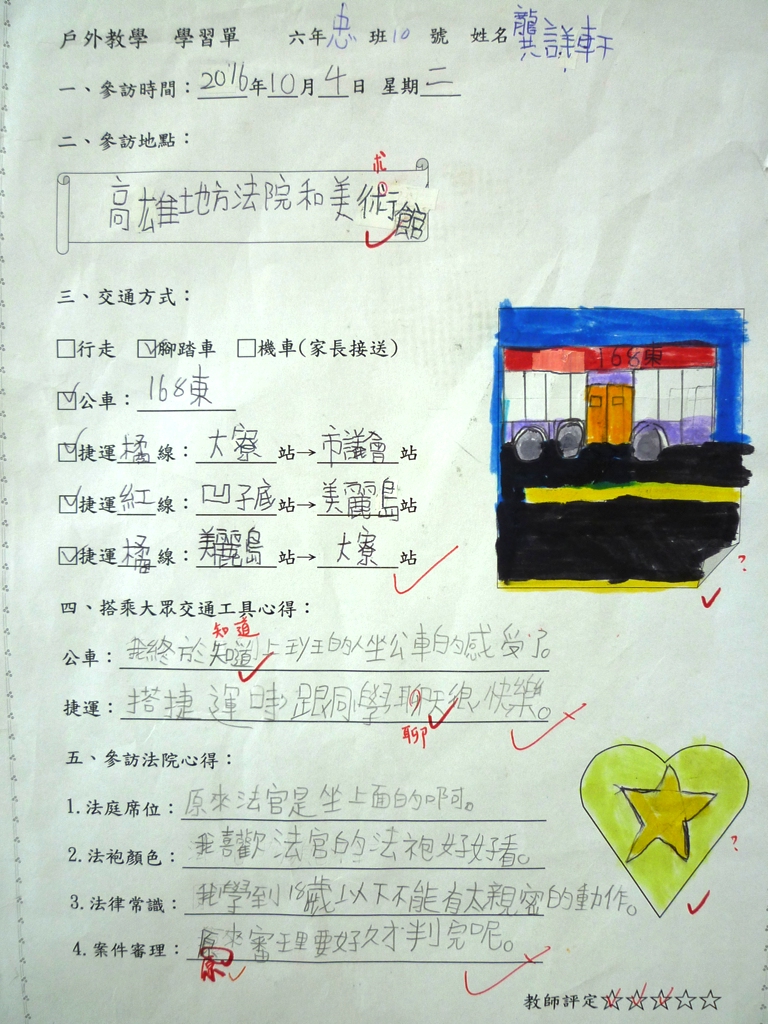 戶外教學 學習單 六年忠班10號 姓名龔詳軒
一、參訪時間：2016年10月4日 星期二
二、參訪地點：
术
高雄地方法院和美術館
三、交通方式：
□行走 ☑腳踏車 □機車(家長接送)
☑公車：168東
168東
☑捷運橘線：大寮站→市議會站
☑捷運紅線：凹子底站→美麗島站
☑捷運橘線：美麗島站→大寮站
?
四、搭乘大眾交通工具心得：
知道
公車：我終於知道上班的人坐公車的感受了。
捷運：搭捷運時跟同學聊天很快樂。
聊
五、參訪法院心得：
1.法庭席位：原來法官是坐上面的啊。
2.法袍顏色：我喜歡法官的法袍好好看。
?
3.法律常識：我學到18歲以下不能有太親密的動作。
4.案件審理：原來審理要好久才判完呢。
原
教師評定☆☆☆☆☆